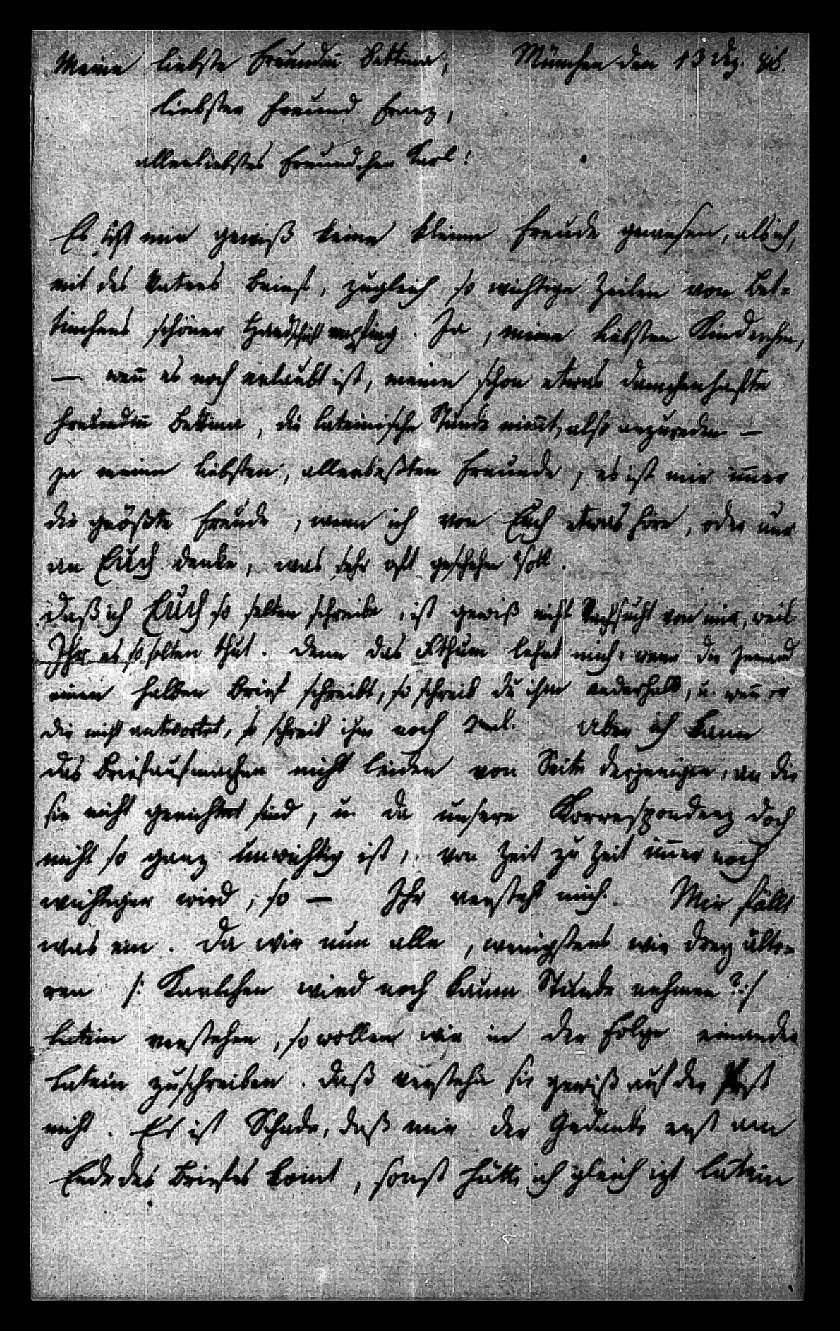 Meine liebste Freundin Bettina, München den 13 Dez.
liebster Freund Franz,
allerliebstes Freundchen Karl!
Es ist mir gewiß keine kleine Freude gewesen, als ich,
mit des Vaters Brief, zugleich so wichtige Zeilen von Bet-
tinchens schöner Handschrift empfing. Ja, meine liebsten Kinderchen,
— weñ es noch erlaubt ist, meine schon etwas damenhafte
Freundin Bettina, die lateinische Stunde nim̃t, also anzureden —
ja meine liebsten, allerbeßten Freunde, es ist mir im̃er
die größte Freude, wenn ich von Euch etwas höre, oder nur
an Euch denke, was sehr oft geschehn soll.
Daß ich Euch so selten schreibe, ist gewiß nicht Rachsucht von mir, weil
Ihr es so selten thut. Denn das lehrt mich: wenn dir Jemand
einen halben Brief schreibt, so schreib du ihm anderhalb, u. weñ er
dir nicht antwortet, so schreib ihm noch 2mal. Aber ich kann
das Briefaufmachen nicht leiden von Seite derjenigen, an die
sie nicht gerichtet sind, u. da unsere Korrespondenz doch
nicht so ganz unwichtig ist, von Zeit zu Zeit im̃er noch
wichtiger wird, so — Ihr versteht mich. Mir fällt
was ein. Da wir nun alle, wenigstens wir drey älte-
ren /: Karlchen wird noch kaum Stunde nehmen?:/
Latein verstehen, so wollen wir in der Folge einander
Latein zuschreiben. Daß verstehn sie gewiß auf der Post
nicht. Es ist Schade, daß mir der Gedanke erst am
Ende des Briefes kom̃t, sonst hätte ich gleich izt Latein